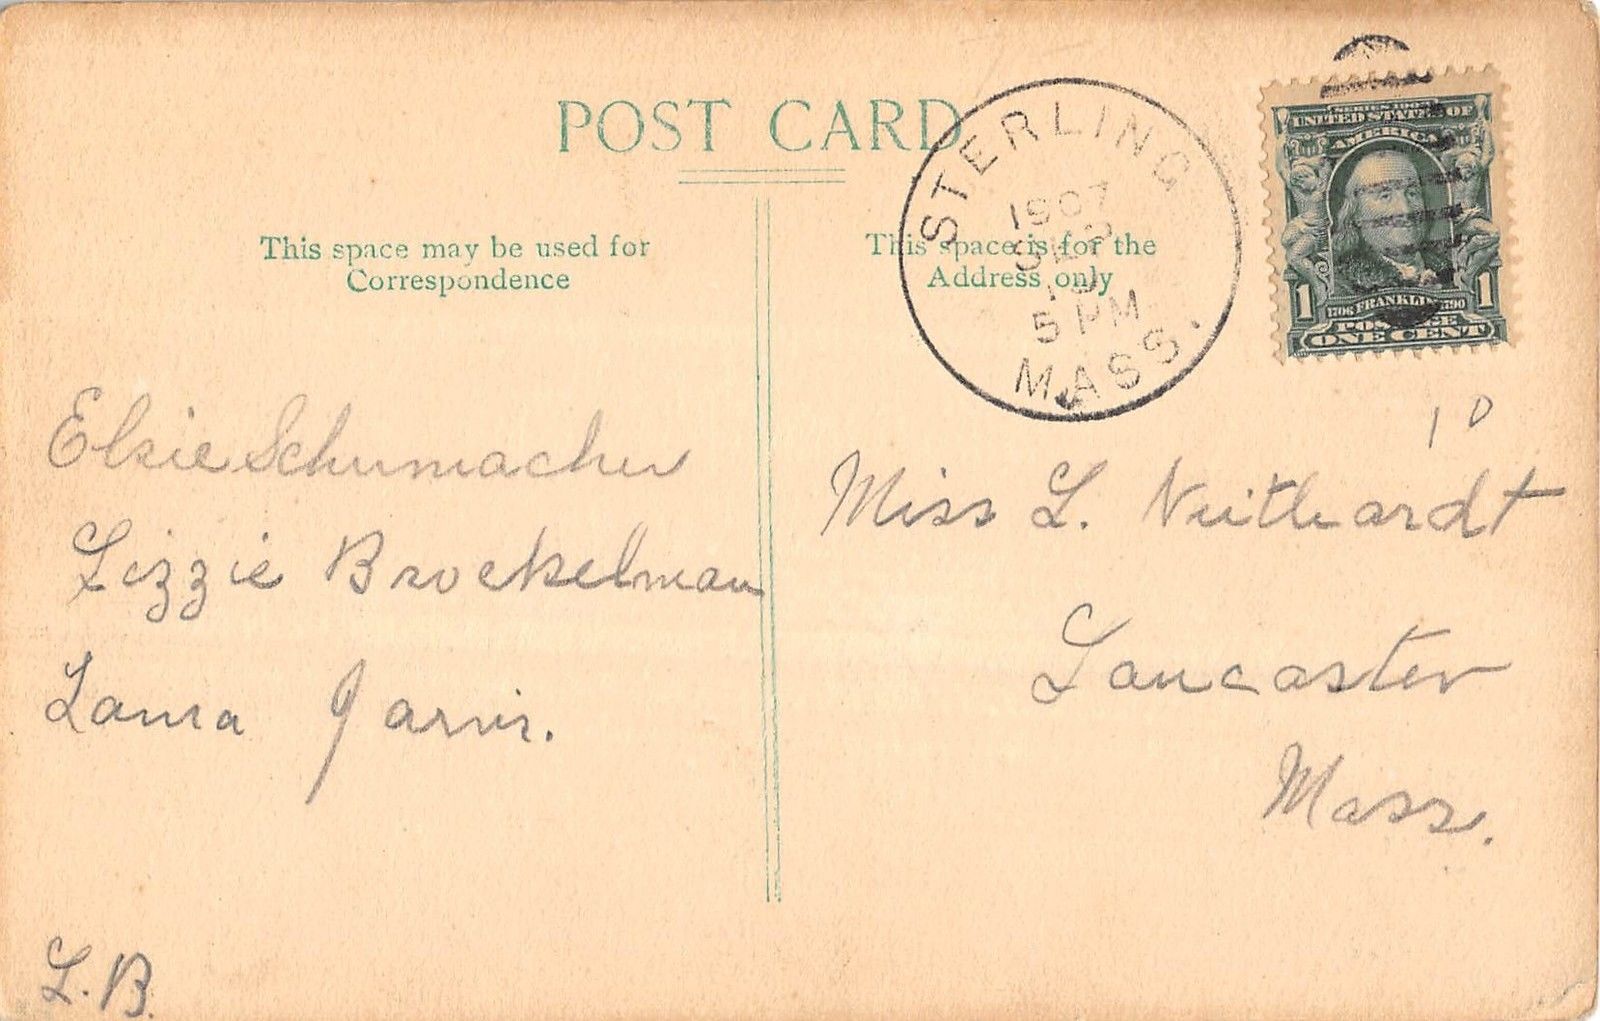 POST CARD
This space may be used for
Correspondence
This space is for the
Address only
STERLING
1907
SEP
5 PM
MASS.
SERIES 1902
UNITED STATES OF
AMERICA
1 1
1706 FRANKLIN 1790
POSTAGE
ONE CENT
10
Elsie Schumacher
Lizzie Brockelman
Laura Jarvis.
L.B.
Miss L. Neithardt
Lancaster
Mass.